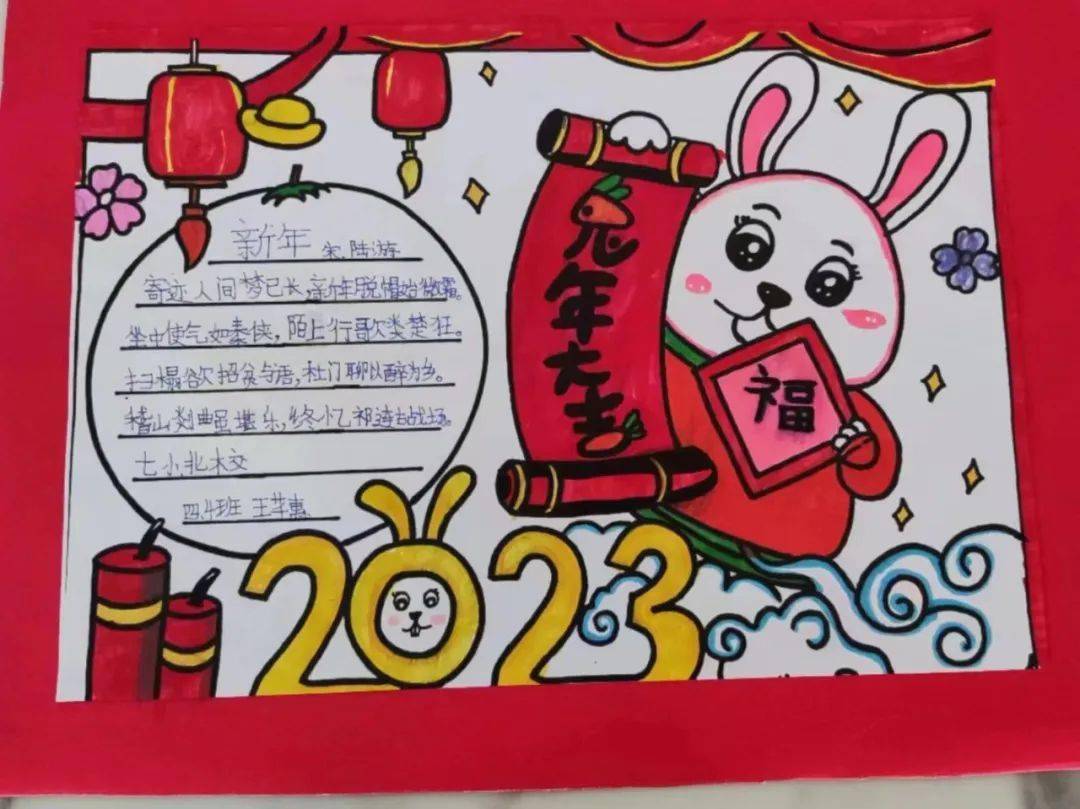 新年 宋.陆游
寄迹人间梦已长,新年脱帽始微霜。
坐中使气如秦侠,陌上行歌类楚狂。
扫榻欲招贫与语,杜门聊以醉为乡。
稽山剡曲虽堪乐,终忆祁连古战场。
七小北校
四.4班 王苹惠
兔年大吉
福
2023